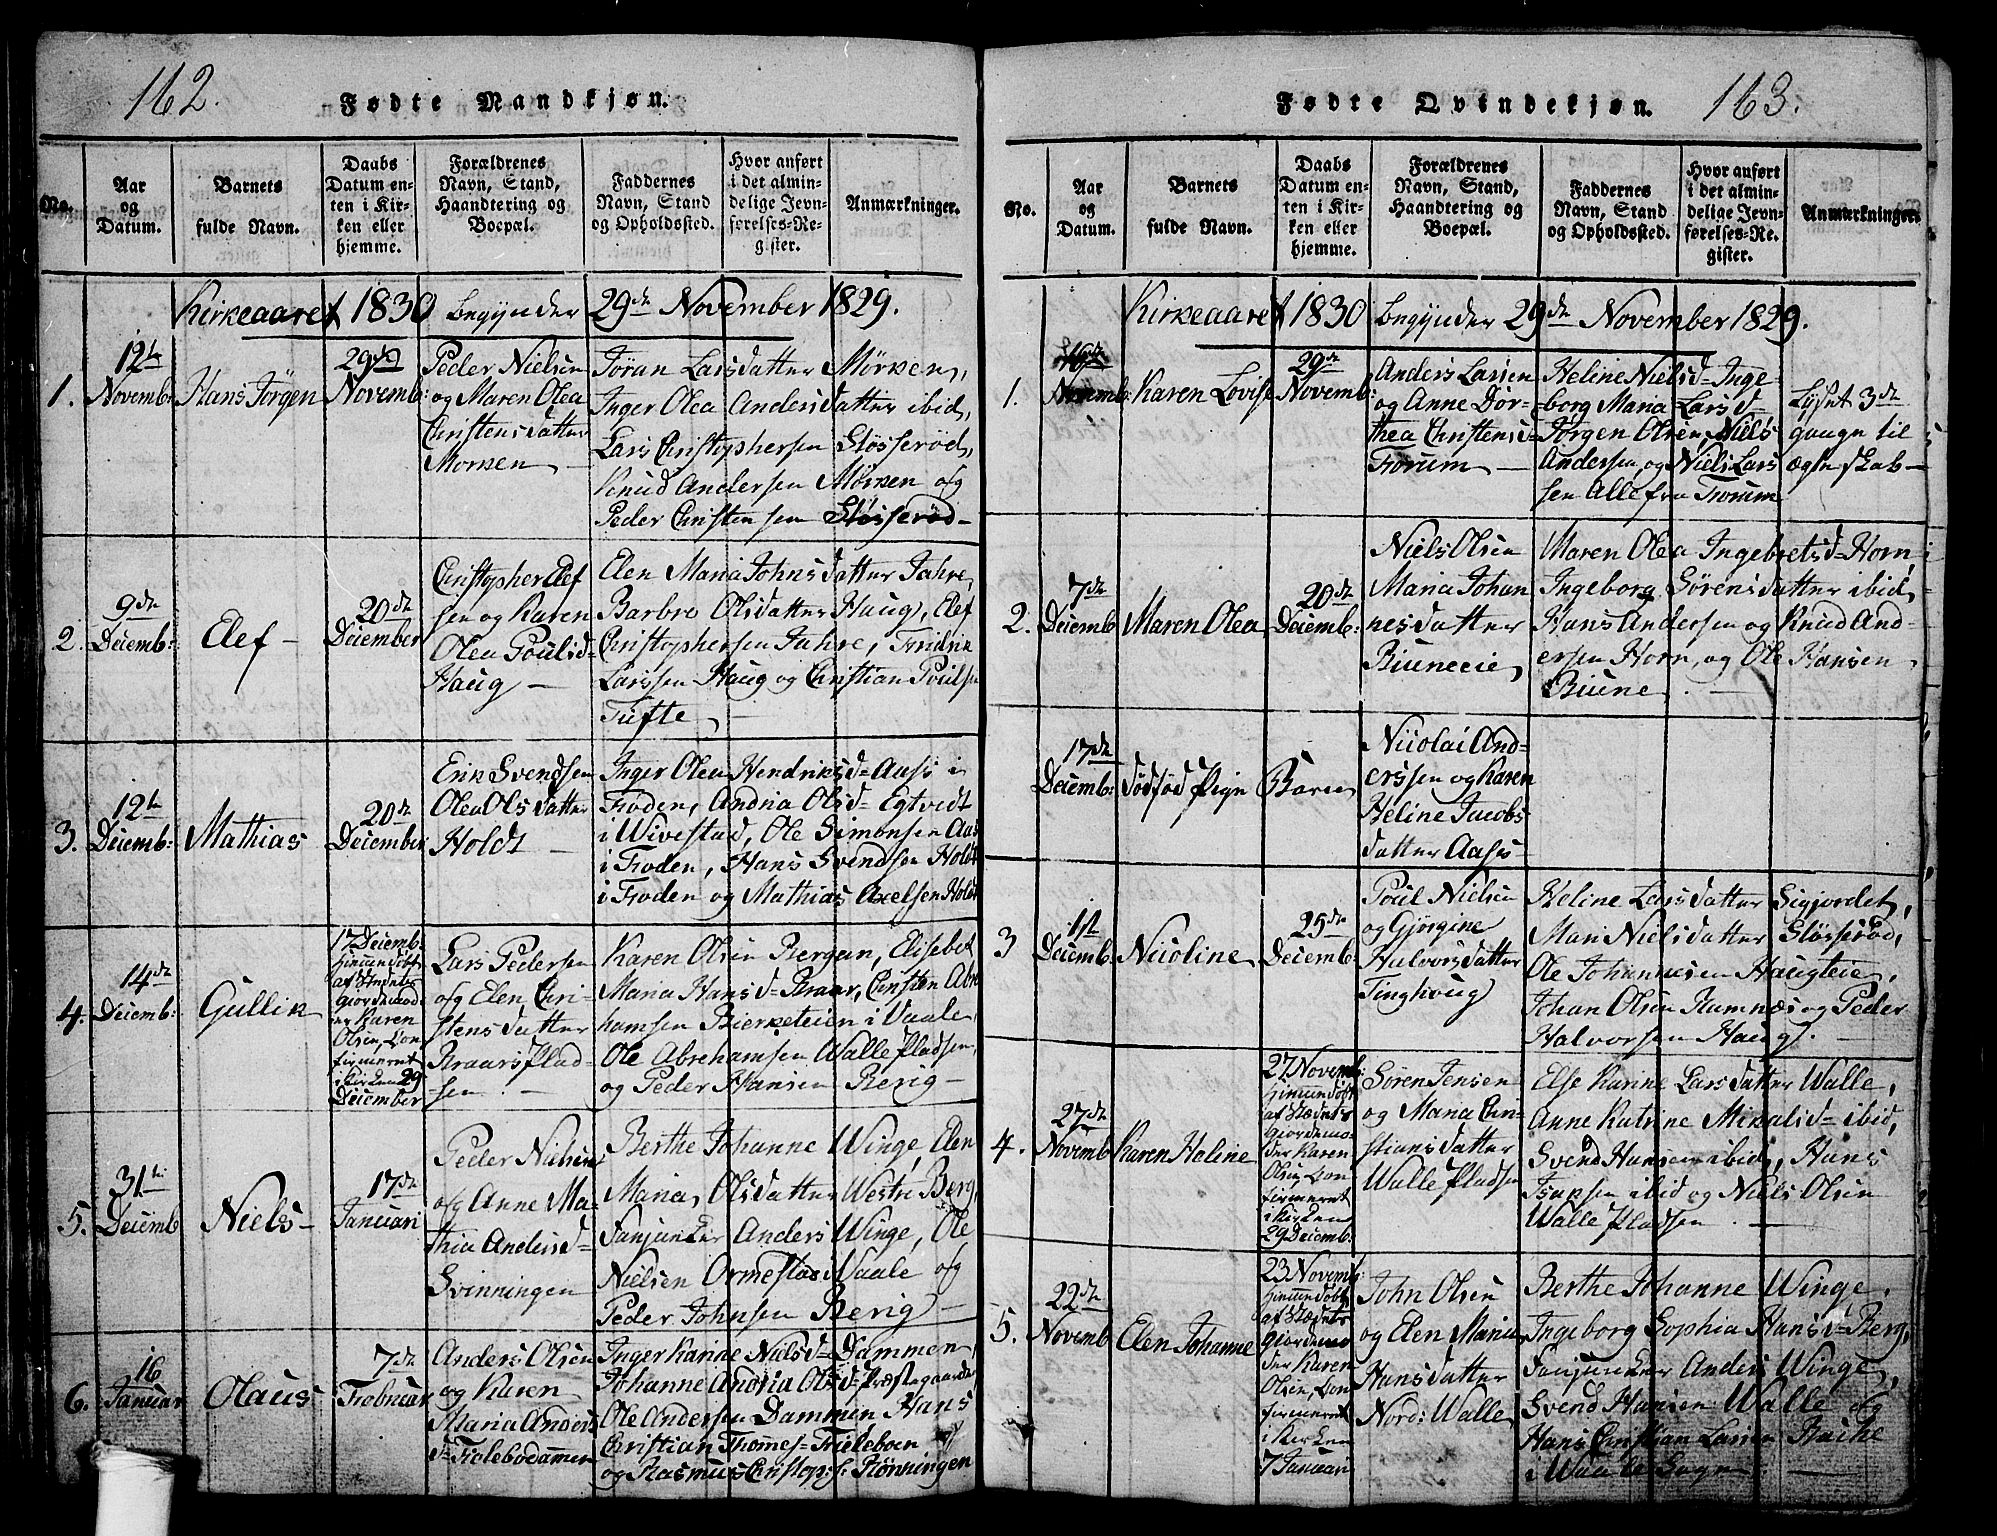 162.
Fødte Mandkjøn.
No.
Aar
og
Datum.
Barnets
fulde Navn.
Daabs
Datum en-
ten i Kir-
ken eller
hjemme.
Forældrenes
Navn, Stand,
Haandtering og
Boepæl.
Faddernes
Navn, Stand
og Opholdssted.
Hvor anført
i det almin-
delige Jevn-
førelses-Re-
gister.
Anmærkninger.
Kirkeaaret 1830 begynder 29de November 1829.
1.
12te
Novemb:
Hans Jörgen
29de
Novemb:
Peder Nielsen
og Maren Olea
Christensdatter
Morken
Jöran Larsdatter Mörken,
Inger Olea Andersdatter ibid,
Lars Christophersen Slösseröd,
Knud Andersen Mörken og
Peder Christensen Slösseröd
2.
9de
Decemb:
Elef
20de
December
Christopher Elef
sen og Karen
Olea Poulsd
Haug
Elen Maria Johnsdatter Jahre,
Barbro Olsdatter Haug, Elef
Christophersen Jahre, Fredrik
Larssen Haug og Christian Poulsen
Tufte
3.
12te
Decemb:
Mathias
20de
December
Erik Svendsen
Olea Olsdatter
Holdt
Inger Olea Hendriksd Aass i
Froden, Andrea Olsd Egtvedt
i Wivestad, Ole Simonsen Aas
i Froden, Hans Svendsen Holdt
i Froden og Mathias Axelsen Holdt
4.
14de
Decemb:
Gullik
17 Decemb.
Hiemmedöbt
af Stedets
Giordemod
er Karen
Olsen, Con
firmeret
i Kirken 29
December
Lars Pedersen
og Elen Chri
stensdatter
Braars Plad
sen
Karen Olsen Bergan, Elisebet
Maria Hansd Braar, Christen Abra
hamsen Bierketeien i Vaale,
Ole Abrehamsen Walle Pladsen,
og Peder Hansen Rerig
5.
31te
Decemb
Niels
17de
Januari
Peder Nielsen
og Anne Ma-
thia Andersd
Svinningen
Berthe Johanne Winge, Elen
Maria Olsdatter Westre Berg,
Fanjunker Anders Winge, Ole
Nielsen Ormestad Vaale og
Peder Johnsen Rerig
6.
16
Januar
Olaus
7de
Februar
Anders Olsen
og Karen
Maria Anders
d Fielebodammen
Inger Karine Nielsd Dammen,
Johanne Andrea Olsd Præstegaarden
Ole Andersen Dammen Hans
Christian Thomes Fieleboen
og Rasmus Christoph: Rönningen
163.
Fødte Qvindekjøn.
No.
Aar
og
Datum.
Barnets
fulde Navn.
Daabs
Datum en-
ten i Kir-
ken eller
hjemme.
Forældrenes
Navn, Stand,
Haandtering og
Boepæl.
Faddernes
Navn, Stand
og Opholdssted.
Hvor anført
i det almin-
delige Jevn-
førelses-Re-
gister.
Anmærkninger.
Kirkeaaret 1830 begynder 29de November 1829.
1.
16de
Novemb:
Karen Lovise
29de
Novemb:
Anders Larsen
og Anne Dor-
thea Christensd
Forum
Heline Nielsd Inge
borg Maria Larsd
Jörgen Olsen, Niels
Andersen, og Niels Lars
sen Alle fra Forum
Lyset 3de
gange til
ægteskab
2.
7de
Decemb
Maren Olea
20de
Decemb:
Niels Olsen
Maria Johan
nesdatter
Biuneeie
Maren Olea Ingebretsd Horn,
Ingeborg Sörensdatter ibid,
Hans Andersen og Knud And-
ersen Horn, og Ole Hansen
Biune
17de
Decemb:
Dödföd Pige Barn
Nicolai And-
erssen og Karen
Heline Jacobs
datter Aass
3
11te
Decemb:
Nicoline
25de
Decemb:
Poul Nielsen
og Gjörgine
Halvorsdatter
Tinghoug
Heline Larsdatter Sigjordet,
Mari Nielsdatter Slösseröd,
Ole Johannesen Haugteie,
Johan Olsen Ramnæs og Peder
Halvorsen Haug.
4.
27de
Novemb
Karen Heline
27 Novemb:
Hiemmedöbt
af Stedets
Giordemo
der Karen
Olsen, Con
firmeret
i Kirken
29 Decemb.
Sören Jensen
og Maria Chri
stiansdatter
Walle Pladsen
Else Karine Larsdatter Walle,
Anne Katrine Mikalsd ibid,
Svend Hansen ibid, Hans
Isaksen ibid og Niels Olsen
Walle Pladsen
5.
22de
Novemb
Elen Johanne
23 Novemb:
Hiemmedöbt
af Stedets
Giordemo
der Karen
Olsen, Con
firmeret
i Kirken
7 Januari
John Olsen
og Elen Maria
Hansdatter
Nord: Walle
Berthe Johanne Winge,
Ingeborg Sophia Hansd Berg,
Fanjunker Anders Winge,
Svend Hansen Walle og
Hans Christian Larsen Bache
i Waale Sogn